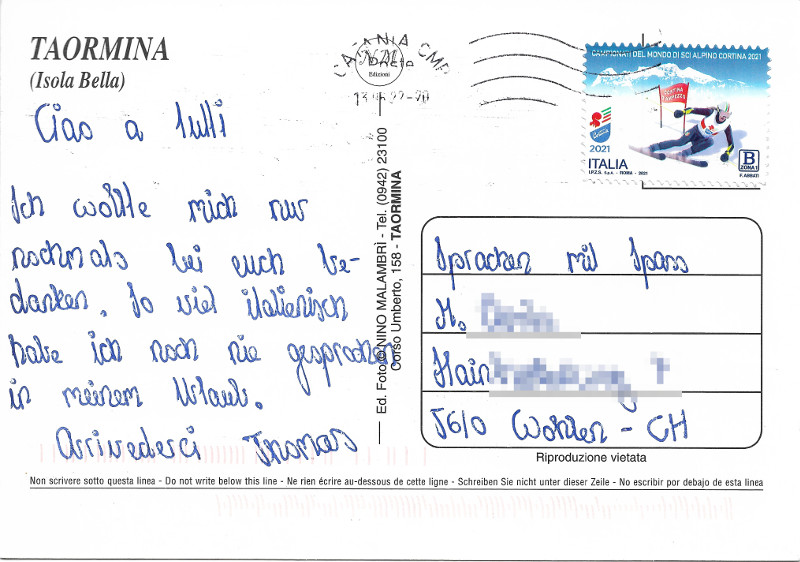 TAORMINA
(Isola Bella)
Ciao a tutti
Ich wollte mich nur
nochmals bei euch be-
danken. So viel italienisch
habe ich noch nie gesprochen
in meinem Urlaub.
Arrivederci Thomas
CATANIA CMP
Edizioni
Ed. Foto © NINO MALAMBRÌ - Tel. (0942) 23100
Corso Umberto, 158 - TAORMINA
CAMPIONATI DEL MONDO DI SCI ALPINO CORTINA 2021
CORTINA
2021
ITALIA
I.P.Z.S. S.p.A. - ROMA - 2021
B
ZONA 1
F. ABBATI
Sprachen mit Spass
M.
Hain
5610 Wohlen - CH
Riproduzione vietata
Non scrivere sotto questa linea - Do not write below this line - Ne rien écrire au-dessous de cette ligne - Schreiben Sie nicht unter dieser Zeile - No escribir por debajo de esta linea